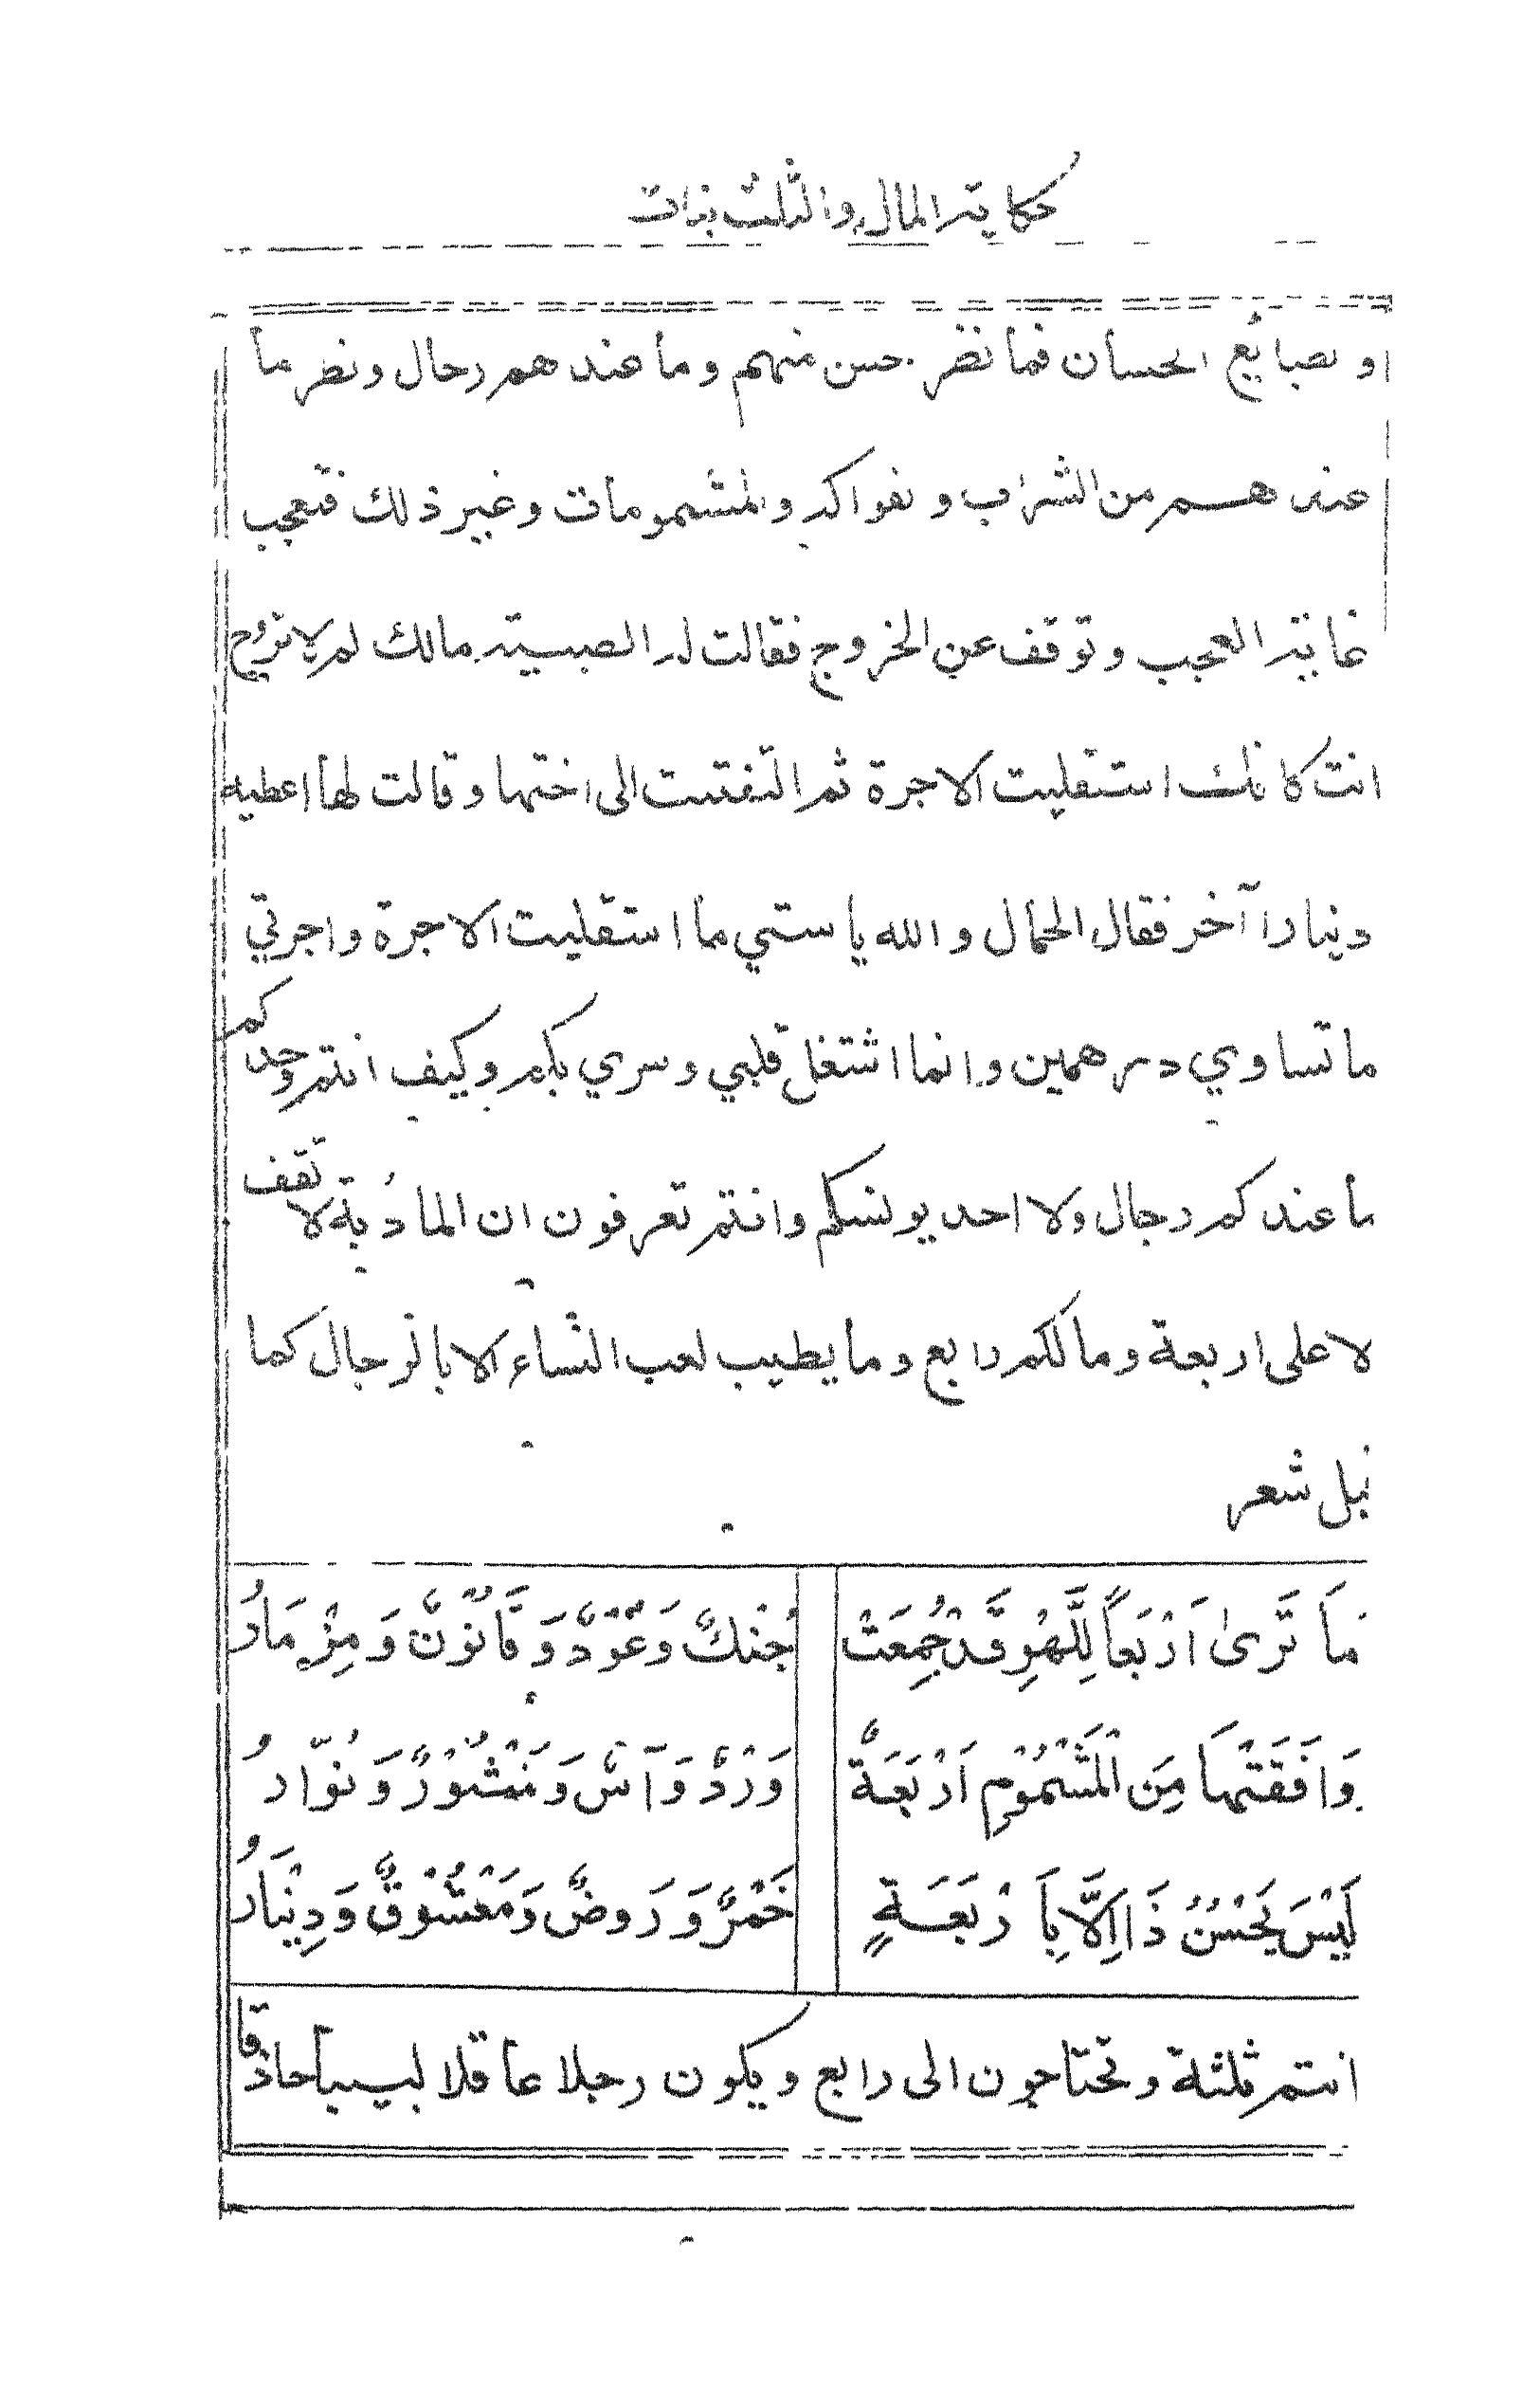 حكاية الحمال والثلث بنات
وبصايع الحسان فما نظر حسن منهم وما عندهم رجال ونظر ما
عندهم من الشراب و لفواكه والمشمومات وغير ذلك فتعجب
غاية العجب وتوقف عن الخروج فقالت له الصبية مالك لم لا تروح
انت كانك استقليت الاجرة ثم التفتت الى اختها وقالت لها اعطيه
دينارا آخر فقال الحمال والله يا ستي ما استقليت الاجرة واجرتي
ما تساوي درهمين وانما اشتغل قلبي وسري بكم وكيف انتم وحدكم
ما عندكم رجال ولا احد يونسكم وانتم تعرفون ان المادُبة لا تقف
لا على اربعة وما لكم رابع وما يطيب لعب النساء الا بالرجال كما
قيل شعر
مَا تَرىٰ اَرْبَعاً لِلَّهْوِ قَدْ جُمِعَتْ جُنْكٌ وَعُوْدٌ وَقَانُوْنٌ وَمِزْمَارُ
وَافَقَتْهَا مِنَ الْمَشْمُوْمِ اَرْبَعَةٌ وَرْدٌ وَآسٌ وَمَنْثُوْرٌ وَنُوّارُ
لَيْسَ يَحْسُنُ ذَا اِلَّا بِاَرْبَعَةٍ خَمْرٌ وَرَوضٌ وَمَعْشُوْقٌ وَدِيْنَارُ
انتم ثلثة وتحتاجون الى رابع ويكون رجلا عاقلا لبيبا حاذقا